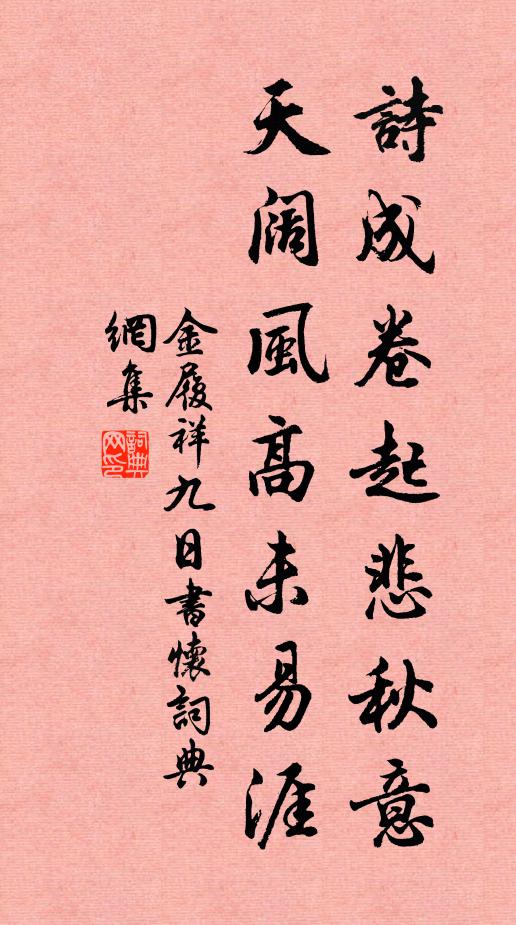 詩成卷起悲秋意
天阔風高未易涯
金履祥九日書懷詞典
網集
詞典網印